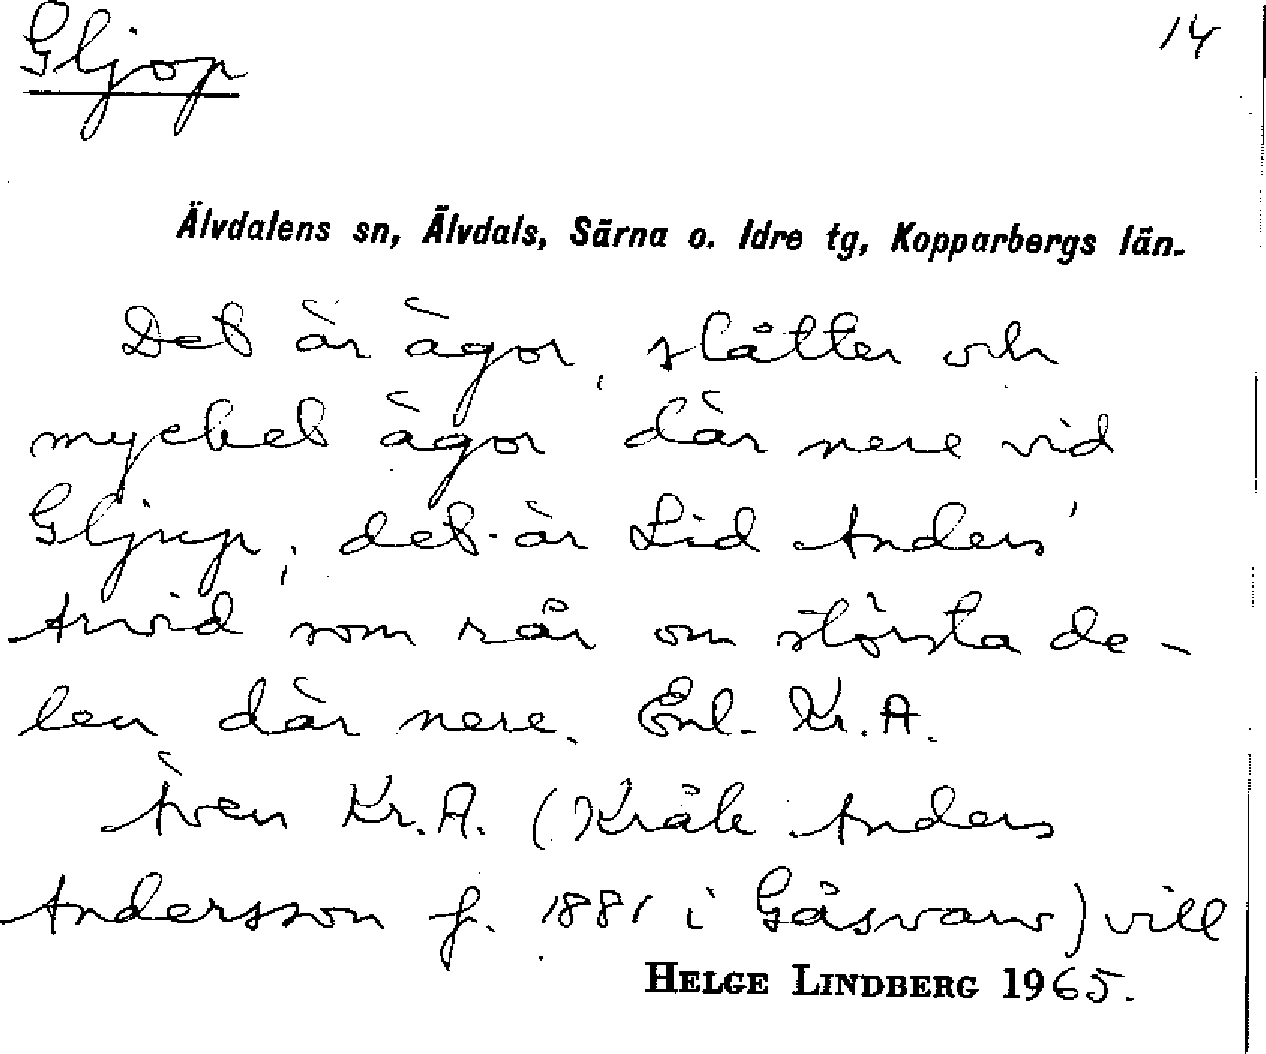 Gljop
14
Älvdalens sn, Älvdals, Särna o. Idre tg, Kopparbergs län.
Det är ägor, slåtter och
mycket ägor där nere vid
Gljup, det är Lid Anders'
Arvid som rår om största de-
len där nere. Enl. Kr. A.
Även Kr. A. (Kråk Anders
Andersson f. 1881 i Gåsvarv) vill
HELGE LINDBERG 1965.